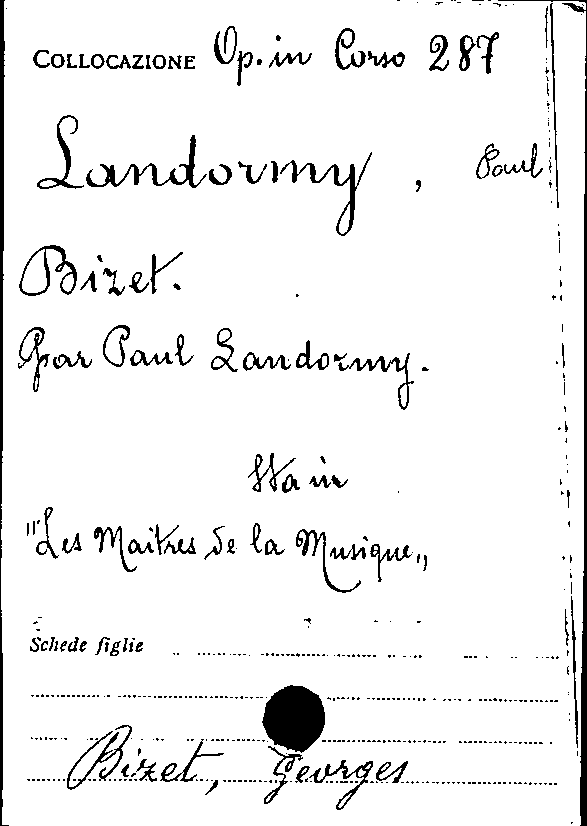 COLLOCAZIONE Op. in Corso 287
Landormy, Paul
Bizet.
Par Paul Landormy.
Sta in
"Les Maitres de la Musique„
Schede figlie
Bizet, Georges